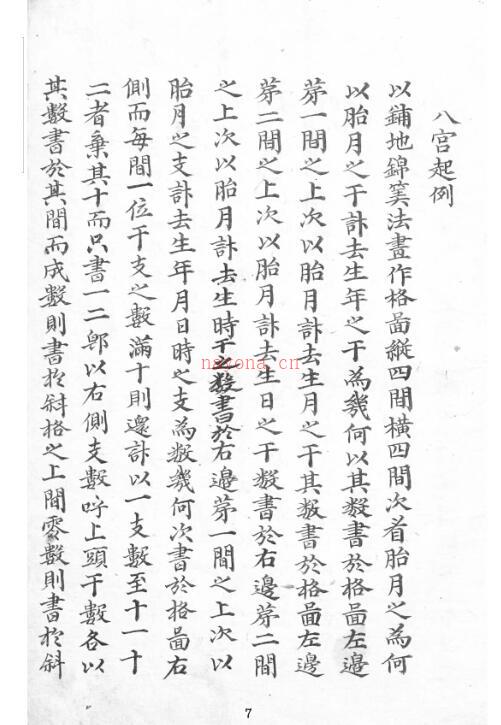 八宮起例
以鋪地錦筭法畫作格啚縱四間橫四間次看胎月之為何
以胎月之干計去生年之干為幾何以其數書於格啚左邊
第一間之上次以胎月計去生月之干其數書於格啚左邊
第二間之上次以胎月計去生日之干數書於右邊第二間
之上次以胎月計去生時干之數書於右邊第一間之上次以
胎月之支計去生年月日時之支為數幾何次書於格啚右
側而每間一位干支之數滿十則還計以一支數至十一十
二者棄其十而只書一二以右側支數呼上頭干數各以
其數書於其間而成數則書於斜格之上間零數則書於斜
nayona.cn
7